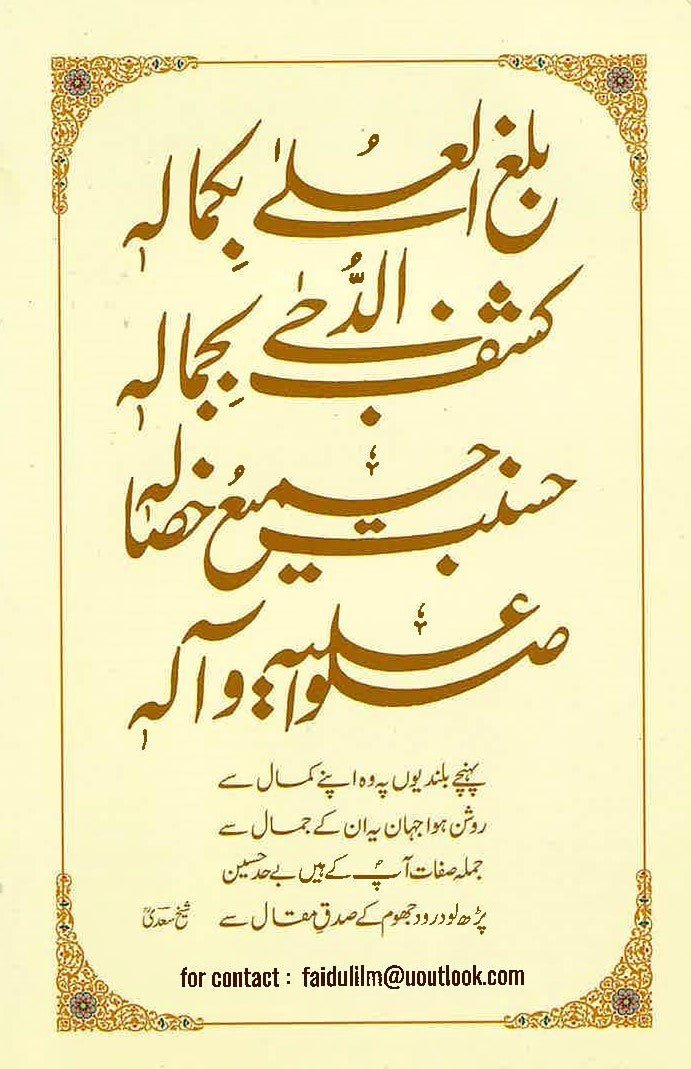 بلغ العُلےٰ بِکمالہٖ
کشف الدُّجےٰ بِجمالہٖ
حسنت جمیعُ خصالہٖ
صلوا علیہ وآلہٖ
پہنچے بلندیوں پہ وہ اپنے کمال سے
روشن ہوا جہان یہ ان کے جمال سے
جملہ صفات آپؐ کے ہیں بے حد حسین
پڑھ لو درود جھوم کے صدقِ مقال سے شیخ سعدیؒ
for contact : faidulilm@uoutlook.com